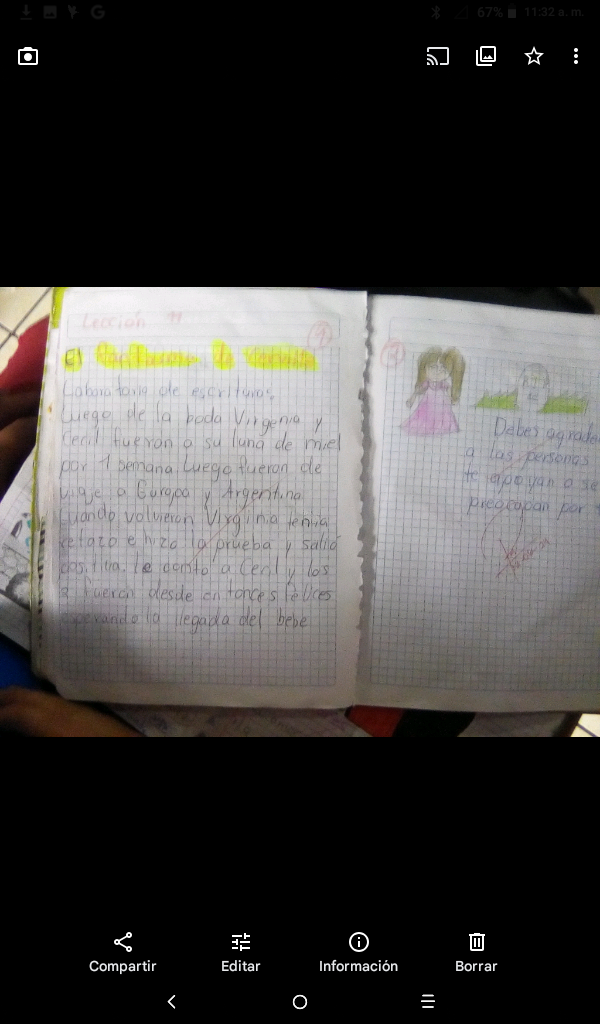 67% 11:32 a. m.
Lección 11
Laboratorio de escrituras
Luego de la boda Virgenia y
Cecil fueron a su luna de miel
por 1 semana Luego fueron de
viaje a Europa y Argentina
cuando volvieron Virgina tenia
retazo e hizo la prueba y salió
positiva. le conto a Cecil y los
2 fueron desde entonces felices
esperando la llegada del bebe
Debes agrade
a las personas
te apoyan o se
preocupan por
Compartir
Editar
Información
Borrar